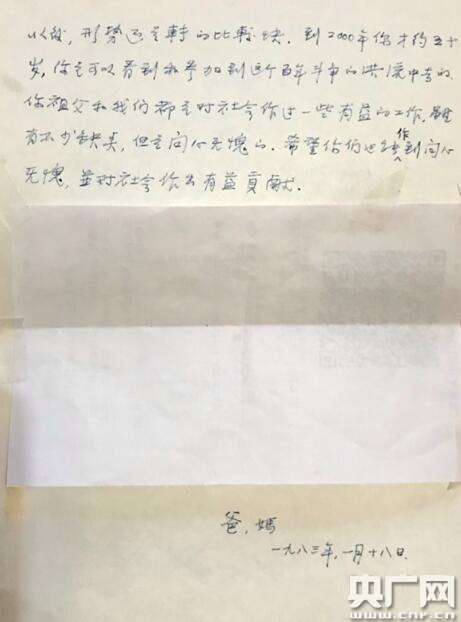 以放，形势还是转的比较快。到2000年你才约五十
岁，你是可以看到和参加到这个百年斗争的洪流中去的。
你祖父和我们都是对社会作过一些有益的工作，虽
有不少缺点，但是问心无愧的。希望你们也能作到问心
无愧，并对社会作出有益贡献。
爸，妈
一九八三年，一月十八日
央广网
www.cnr.cn